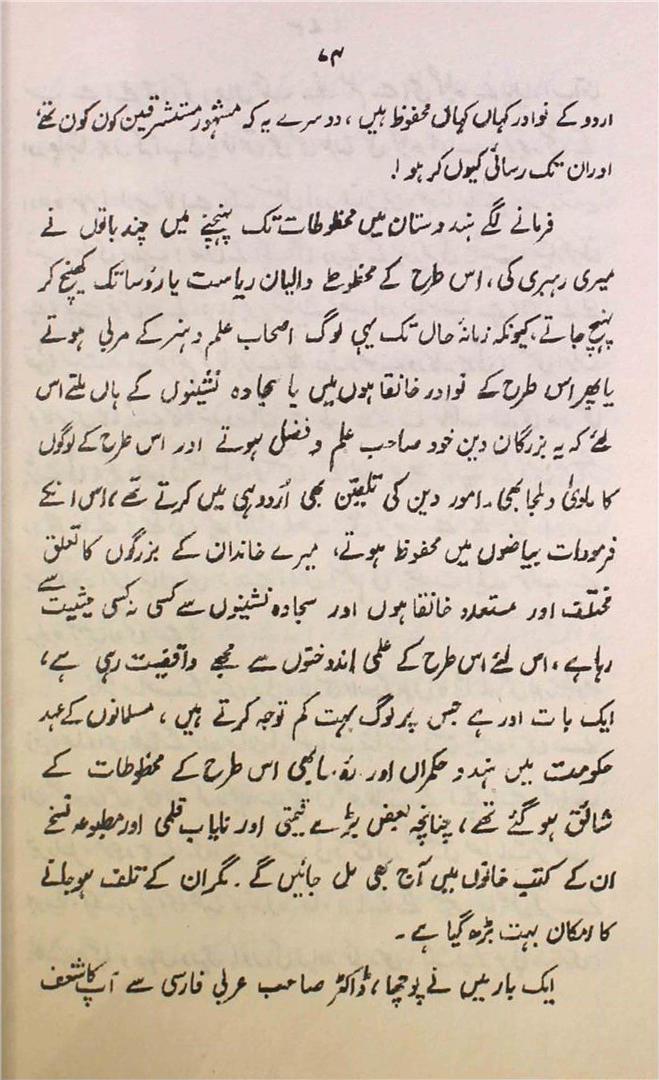 ۷۴
اردو کے نوادر کہاں کہاں محفوظ ہیں، دوسرے یہ کہ مشہور مستشرقین کون کون تھے
اور ان تک رسائی کیوں کر ہو!
فرمانے لگے ہندوستان میں مخطوطات تک پہنچنے میں چند باتوں نے
میری رہبری کی، اس طرح کے مخطوطے والیان ریاست یا رؤسا تک کھنچ کر
پہنچ جاتے، کیونکہ زمانۂ حال تک یہی لوگ اصحاب علم و ہنر کے مربی ہوتے
یا پھر اس طرح کے نوادر خانقاہوں میں یا سجادہ نشینوں کے ہاں ملتے اس
لئے کہ یہ بزرگان دین خود صاحب علم و فضل ہوتے اور اس طرح کے لوگوں
کا ماویٰ و ملجا بھی۔ امور دین کی تلقین بھی اُردو ہی میں کرتے تھے، اس لئے
فرمودات بیاضوں میں محفوظ ہوتے، میرے خاندان کے بزرگوں کا تعلق
مختلف اور متعدد خانقاہوں اور سجادہ نشینوں سے کسی نہ کسی حیثیت سے
رہا ہے، اس لئے اس طرح کے علمی اندوختوں سے مجھے واقفیت رہی ہے،
ایک بات اور ہے جس پر لوگ بہت کم توجہ کرتے ہیں، مسلمانوں کے عہد
حکومت میں ہندو حکمراں اور رؤسا بھی اس طرح کے مخطوطات کے
شائق ہو گئے تھے، چنانچہ بعض بڑے قیمتی اور نایاب قلمی اور مطبوعہ نسخے
ان کے کتب خانوں میں آج بھی مل جائیں گے۔ مگر ان کے تلف ہو جانے
کا امکان بہت بڑھ گیا ہے۔
ایک بار میں نے پوچھا، ڈاکٹر صاحب عربی فارسی سے آپ کا شغف